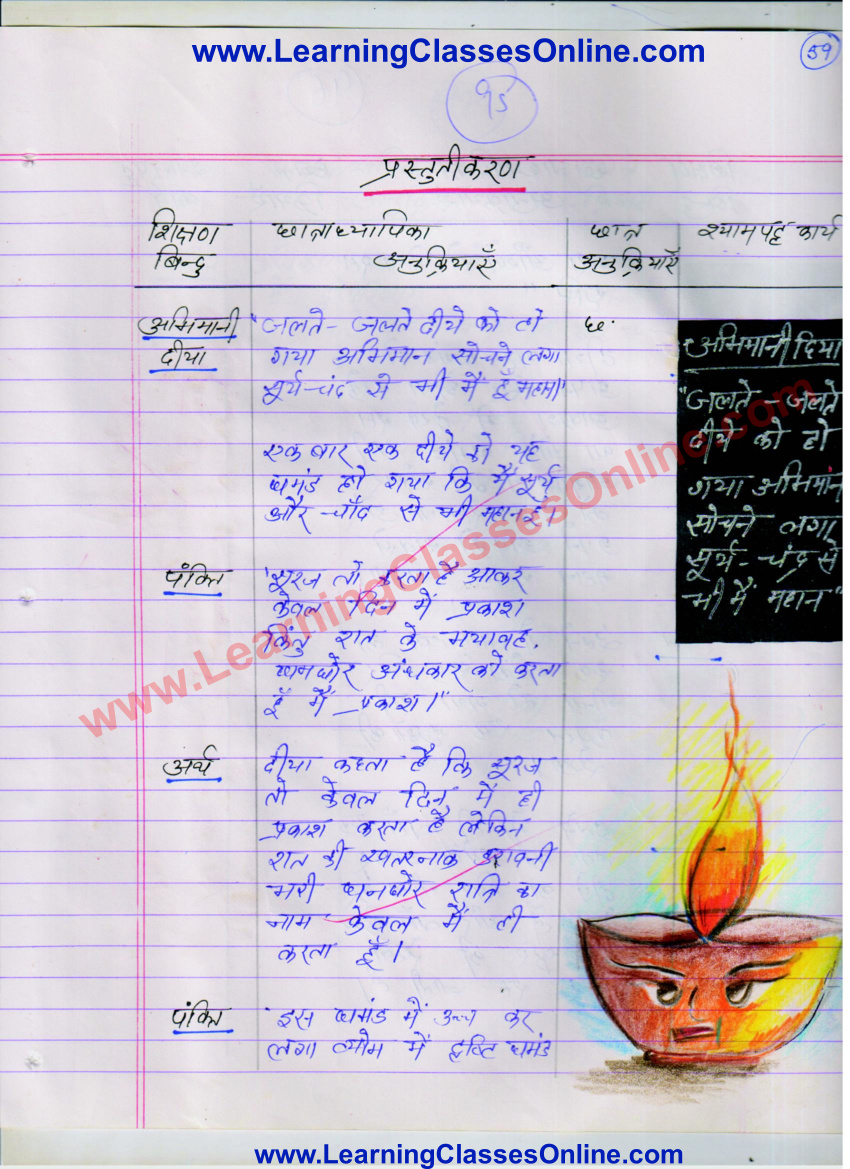 www.LearningClassesOnline.com
59
प्रस्तुतीकरण
शिक्षण बिन्दु
छात्राध्यापिका अनुक्रियाएँ
छात्र अनुक्रियाएँ
श्यामपट्ट कार्य
अभिमानी
दीया
"जलते-जलते दीये को हो
गया अभिमान सोचने लगा
सूर्य-चंद्र से भी मैं हूँ महान।"
छ.
एक बार एक दीये को यह
घमंड हो गया कि मैं सूर्य
और चाँद से भी महान हूँ।
पंक्ति
"सूरज तो करता है आकर
केवल दिन में प्रकाश
किंतु रात के भयावह,
घनघोर अंधकार को करता
हूँ मैं प्रकाश।"
अर्थ
दीया कहता है कि सूरज
तो केवल दिन में ही
प्रकाश करता है लेकिन
रात की खतरनाक डरावनी
भरी घनघोर रात्रि का
नाम केवल मैं ही
करता हूँ।
पंक्ति
इस घमंड में कर
लगा व्योम में दृष्टि घमंड
अभिमानी दिया
"जलते-जलते
दीये को हो
गया अभिमान
सोचने लगा
सूर्य-चंद्र से
भी मैं महान"
www.LearningClassesOnline.com
www.LearningClassesOnline.com